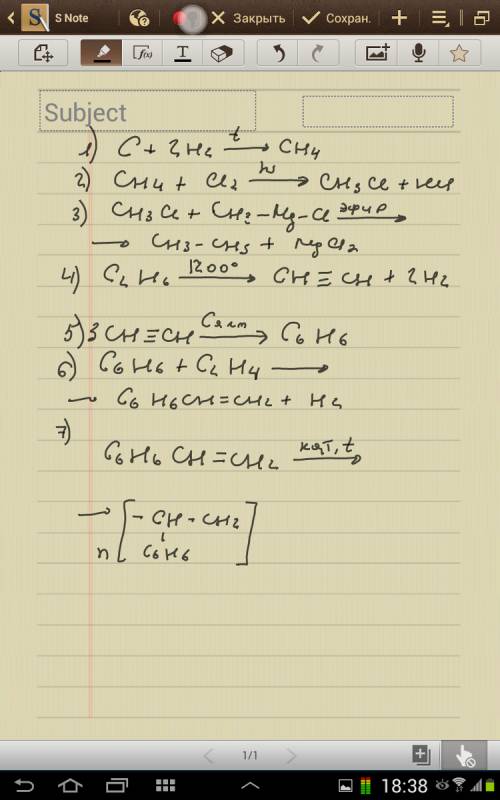 S Note
Закрыть
Сохран.
Subject
1) C + 2H2 t→ CH4
2) CH4 + Cl2 hν→ CH3Cl + HCl
3) CH3Cl + CH3-Mg-Cl эфир→
→ CH3-CH3 + MgCl2
4) C2H6 1200°→ CH≡CH + 2H2
5) 3CH≡CH Cакт→ C6H6
6) C6H6 + C2H4 →
→ C6H6CH=CH2 + H2
7)
C6H6CH=CH2 кат, t→
→ [-CH-CH2]
n C6H6
1/1
18:38